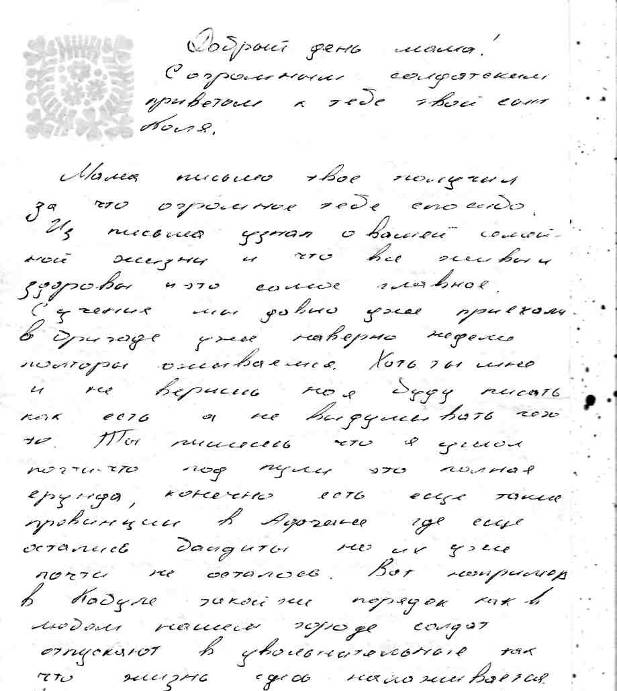 Добрый день мама!
С огромным солдатским
приветом к тебе твой сын
Коля.
Мама письмо твое получил
за что огромное тебе спасибо.
Из письма узнал о вашей семей-
ной жизни и что все живы и
здоровы и это самое главное.
С учения мы давно уже приехали
в бригаде уже наверно недели
полторы
Хоть ты мне
и не веришь но я буду писать
как есть а не выдумывать чего
то. Ты пишешь что я ушол
почти что под пули это полная
ерунда, конечно есть еще такие
провинции в Афгане где еще
остались бандиты но их уже
почти не осталось. Вот например
в Кабуле такой же порядок как в
любом нашем городе солдат
отпускают в увольнительные так
что жизнь здесь налаживается